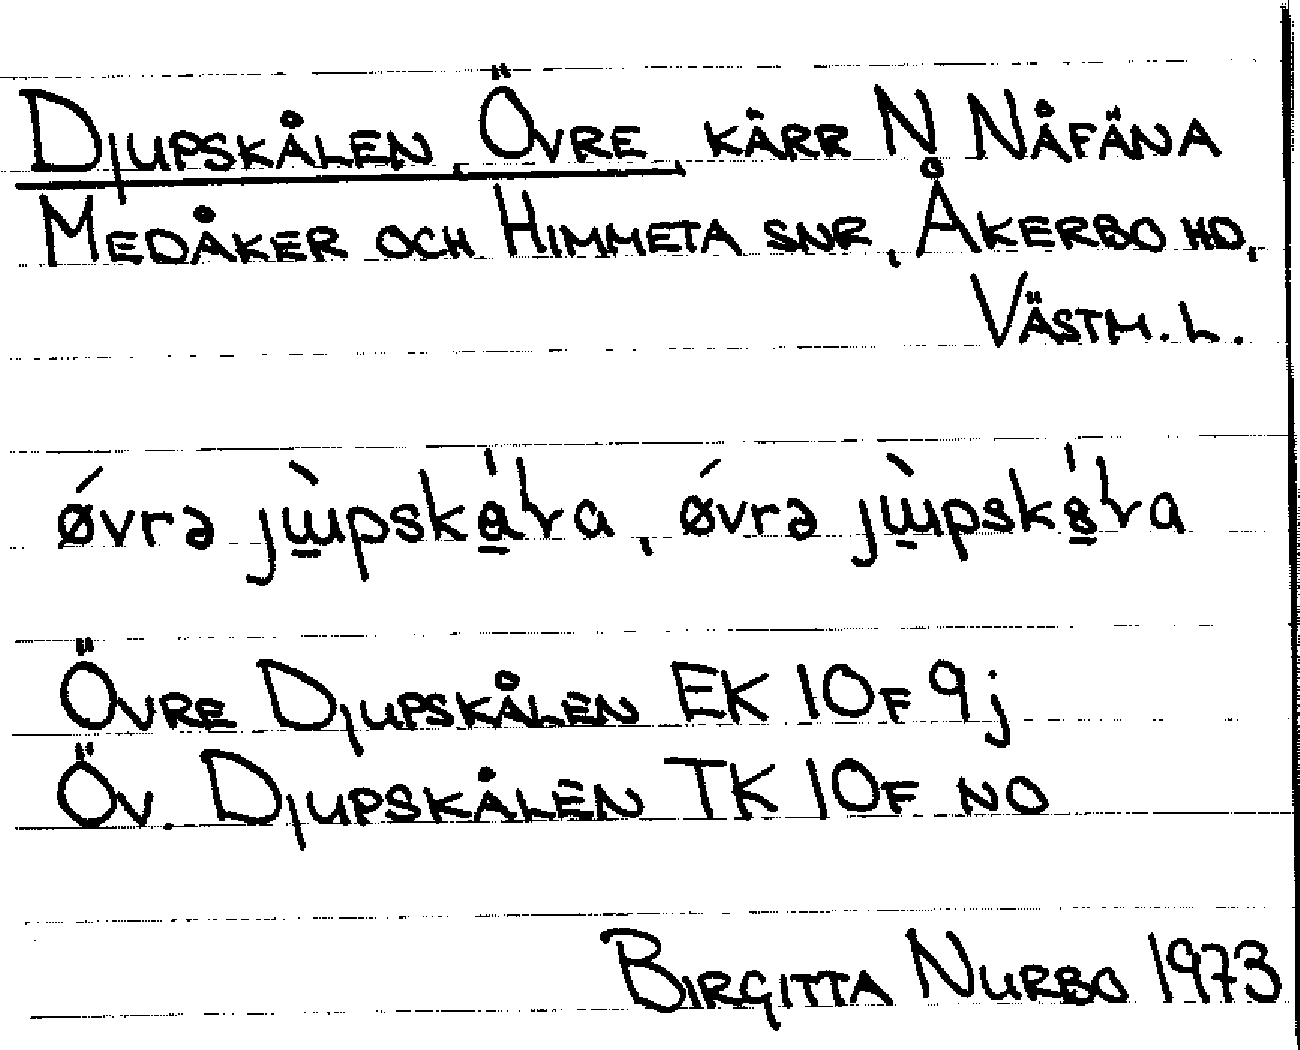 Djupskålen, Övre, kärr N Nåfäna
Medåker och Himmeta snr, Åkerbo hd,
Västm. l.
ǿvrə
Övre Djupskålen EK 10f 9j
Öv. Djupskålen TK 10f NO
Birgitta Nurbo 1973